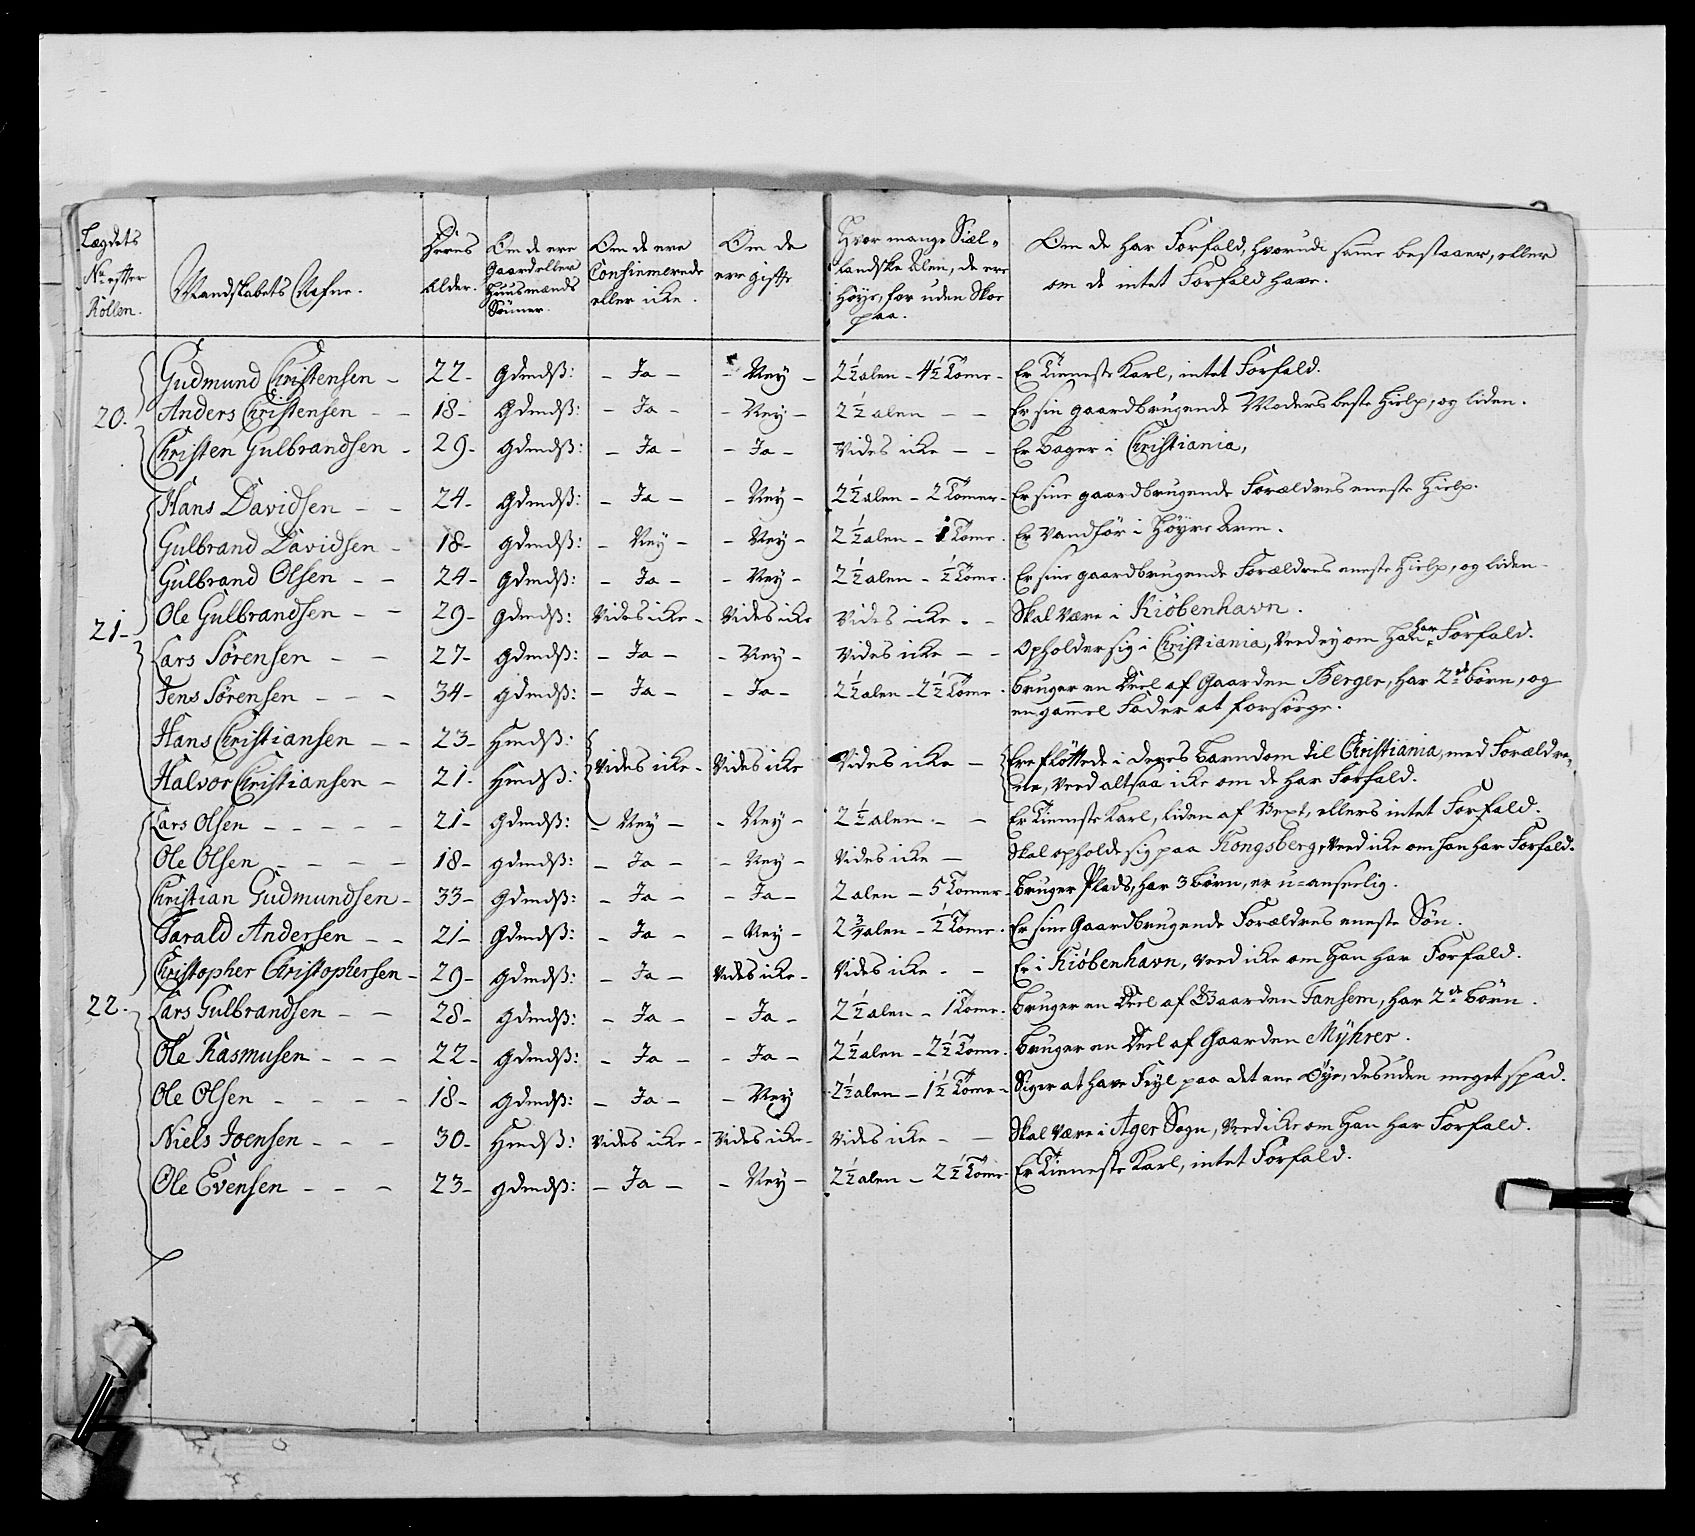 Lægdets No efter Rollen. | Mandskabets Nafne. | Deres alder. | Om de ere Gaard eller Huusmænds Sönner. | Om de ere Confirmerede eller icke. | Om de ere gifte | Hvor mange Siællandske Alen, de ere Høye, for uden Skoe paa. | Om de har Forfald, hvorudi samme bestaaer, eller om de intet Forfald have.
Gudmund Christensen - | 22- | Gdmdsß: | - Ja - | - Ney - | 2½ alen - 4½ Tome - | Er Tieneste Karl, intet Forfald.
20. Anders Christensen - - | 18- | Gdmdsß: | - Ja - | - Ney - | 2½ alen - - | Er sin gaardbrugende Moders beste Hielp, og liden.
Christen Gulbrandsen - | 29- | Gdmdsß: | - Ja - | - Ja - | Vides icke - - | Er Bager i Christiania,
Hans Davidsen - - | 24- | Gdmdsß: | - Ja - | - Ney - | 2½ alen - 2 Tomer - | Er sine gaardbrugende Forældres eneste Hielp.
Gulbrand Davidsen - | 18- | Gdmdsß: | - Ney - | - Ney - | 2½ alen - 1 Tome. | Er Vandför i Høyre Arm.
Gulbrand Olsen - - | 24- | Gdmdsß: | - Ja - | - Ney - | 2½ alen - ½ Tome. | Er sine gaardbrugende Forældres eneste Hielp, og liden -
21- Ole Gulbrandsen - - | 29- | Gdmdsß: | Vides icke - | Vides icke | Vides icke - - | Skal være i Kiöbenhavn.
Lars Sörensen - - | 27- | Gdmdsß: | - Ja - | - Ney - | Vides icke - - | Opholder sig i Christiania, Veed ey om Han har Forfald.
Jens Sörensen - - - | 34- | Gdmdsß: | - Ja - | - Ja - | 2½ alen - 2½ Tome. | Bruger en Deel af Gaarden Berger, Har 2de börn, og
en gammel Fader at forsörge.
Hans Christiansen - - | 23- | Hmdsß: | Vides icke - | Vides icke | Vides icke - | Ere flöttede i deres Barndom til Christiania, med Forældre-
Halvor Christiansen - | 21- | Hmdsß: | ne, Veed altsaa icke om de Har Forfald.
Lars Olsen - - - - - | 21- | Gdmdsß: | - Ney - | - Ney - | 2½ alen - - | Er Tieneste Karl, liden af Vext, ellers intet Forfald.
Ole Olsen - - - - | 18- | gdmdsß: | - Ja - | - Ney - | Vides icke - | Skal opholde sig paa Kongsberg, Veed icke om han har Forfald.
Christian Gudmundsen - | 33- | Gdmdsß: | - Ja - | - Ja - | 2 alen - 5 Tomer - | Bruger Plads, har 3 börn, er u-anseelig.
Harald Andersen - - | 21- | Gdmdsß: | - Ja - | - Ney - | 2¾ alen - ½ Tome. | Er sine Gaardbrugende Forældres eneste Sön.
Christopher Christophersen - | 29- | gdmdsß: | - Ja - | Vides icke - | Vides icke - - | Er i Kiöbenhavn, Veed icke om Han har Forfald.
22. Lars Gulbrandsen - - | 28- | gdmdsß: | - Ja - | - Ja - | 2½ alen - 1 Tome. | Bruger en Deel af Gaarden Tansem, har 2de Börn.
Ole Rasmusen - - - | 22- | gdmdsß: | - Ja - | - Ja - | 2½ alen - 2½ Tome. | Bruger en Deel af Gaarden Mÿhrer.
Ole Olsen - - - - | 18- | gdmdsß: | - Ja - | - Ney | 2½ alen - 1½ Tome - | Siger at have Feyl paa det ene Øye, desuden meget spæd.
Niels Joensen - - - | 30- | Hmdsß: | Vides icke - | Vides icke - | Vides icke - - | Skal være i Ager Sogn, Veed icke om Han har Forfald.
Ole Evensen - - - | 23- | gdmdsß: | - Ja - | - Ney - | 2½ alen - 2½ Tome | Er Tieneste Karl, intet Forfald.